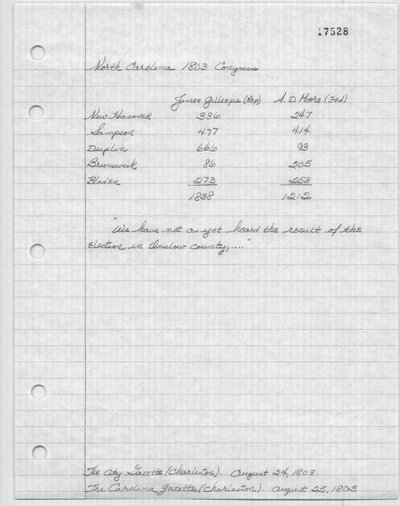 17528
North Carolina 1803 Congress
James Gillespie (Rep) A. D. Moore (Fed)
New Hanover 336 247
Sampson 477 414
Duplin 666 93
Brunswick 86 205
Bladen 273 253
1838 1212
"We have not as yet heard the result of the
election in Onslow county,...."
The City Gazette (Charleston). August 24, 1803.
The Carolina Gazette (Charleston). August 25, 1803